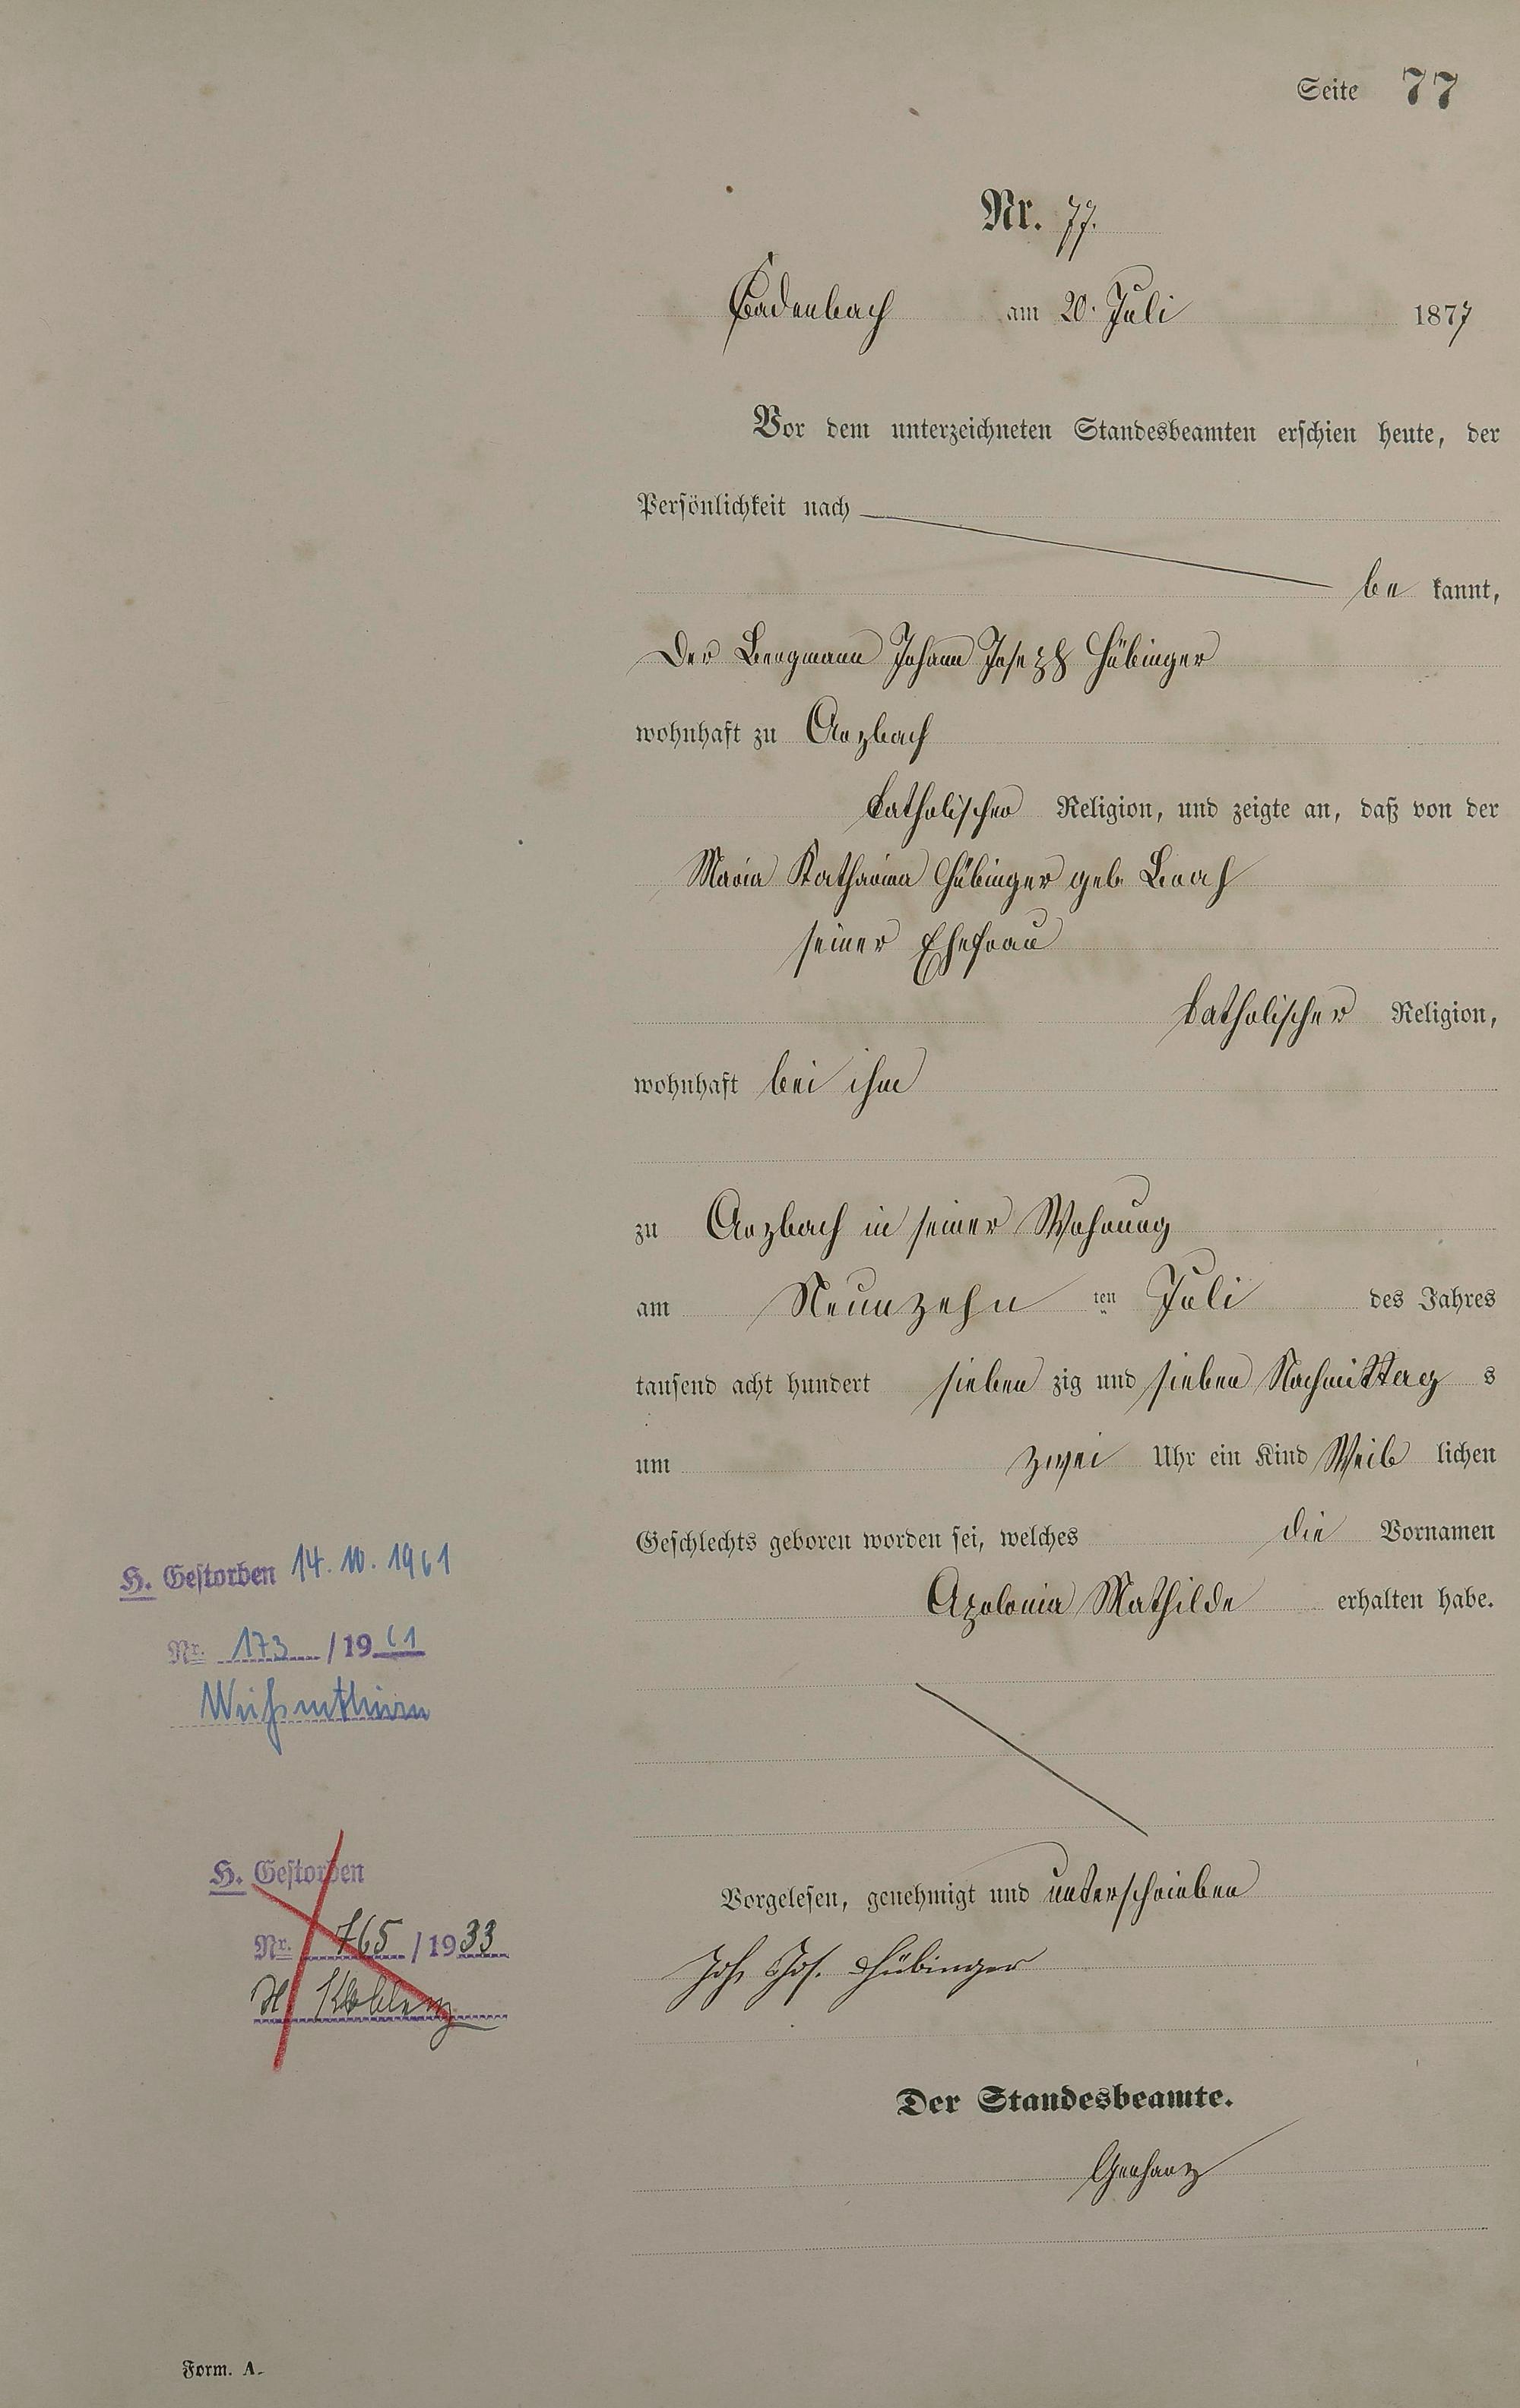 Seite 77
Nr. 77.
Cadenbach am 20. Juli 1877
Vor dem unterzeichneten Standesbeamten erschien heute, der
Persönlichkeit nach
be kannt,
der Bergmann Johann Joseph Hübinger
wohnhaft zu Arzbach
katholischer Religion, und zeigte an, daß von der
Maria Katharina Hübinger geb. Brach
seiner Ehefrau
katholischer Religion,
wohnhaft bei ihm
zu Arzbach in seiner Wohnung
am Neunzehn ten Juli des Jahres
tausend acht hundert sieben zig und sieben Nachmittag s
um zwei Uhr ein Kind Weib lichen
Geschlechts geboren worden sei, welches die Vornamen
Apolonia Mathilde erhalten habe.
Vorgelesen, genehmigt und unterschrieben
Joh. Jos. Hübinger
Der Standesbeamte.
Gerharz
H. Gestorben 14.10.1961
Nr. 173 / 1961
Weißenthurm
H. Gestorben
Nr. 765 / 1933
Koblenz
Form. A.